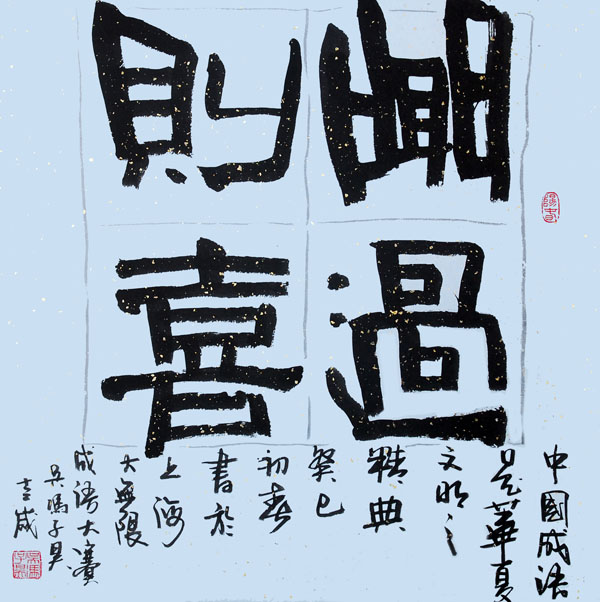 聞過
則喜
中國成語
是華夏
文明之
精典
癸巳
初春
書於
上海
大無限
成語大賽